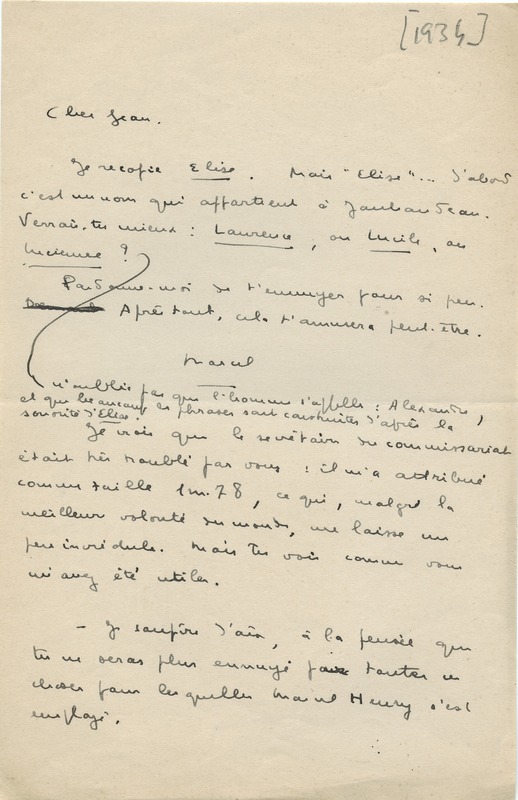 [1934]
Cher Jean.
Je recopie Elise. Mais "Elise"... D'abord
c'est un nom qui appartient à Jouhandeau.
Verrais-tu mieux : Laurence, ou Lucile, ou
Lucienne ?
Pardonne-moi de t'ennuyer pour si peu.
Après tout, cela t'amusera peut-être.
Marcel
n'oublie pas que l'homme s'appelle : Alexandre,
et que beaucoup de phrases sont construites d'après la
sonorité d'Elise.
Je vois que le secrétaire du commissariat
était très troublé par vous : il m'a attribué
comme taille 1m.78, ce qui, malgré la
meilleur volonté du monde, me laisse un
peu incrédule. Mais tu vois comme vous
m'avez été utiles.
- Je soupire d'aise, à la pensée que
tu ne seras plus ennuyé par toutes ces
choses pour lesquelles Marcel Henry s'est
employé.